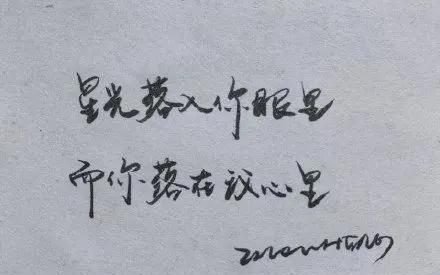 星光落入你眼里
而你落在我心里